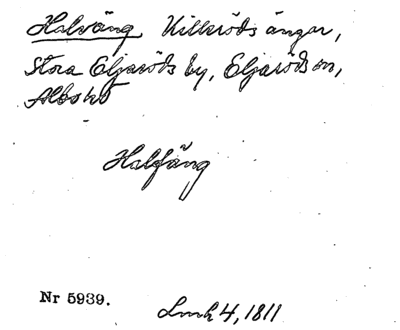 Halväng Killeröds ängar,
Stora Eljaröds by, Eljaröds sn,
Albo hd
Halfäng
Nr 5939.
Lmk 4, 1811